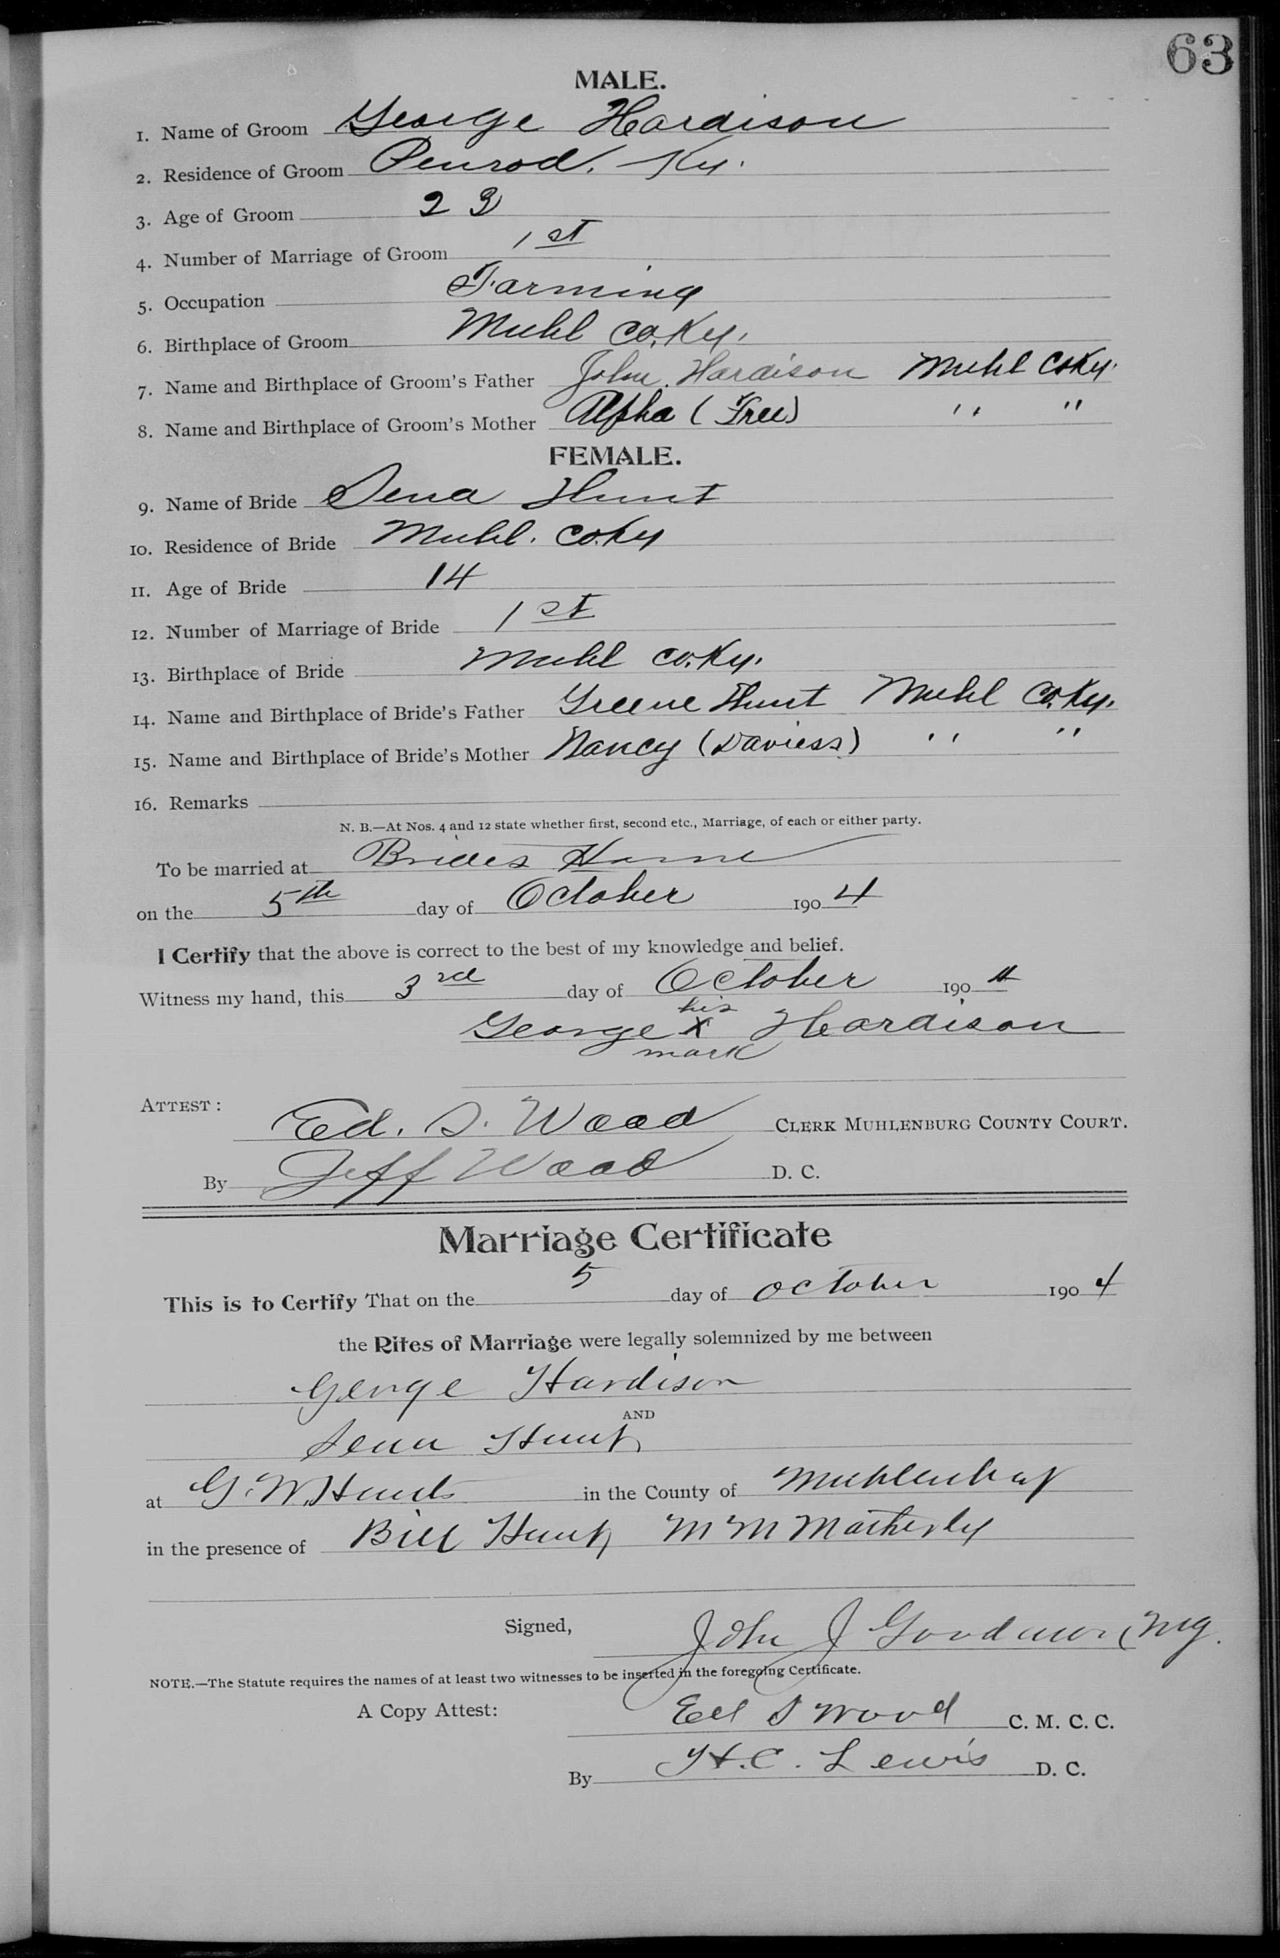 63
MALE.
1. Name of Groom George Hardison
2. Residence of Groom Penrod. Ky.
3. Age of Groom 23
4. Number of Marriage of Groom 1st
5. Occupation Farming
6. Birthplace of Groom Muhl Co. Ky.
7. Name and Birthplace of Groom's Father John. Hardison Muhl Co Ky.
8. Name and Birthplace of Groom's Mother Alpha (Free) " "
FEMALE.
9. Name of Bride Sena Hunt
10. Residence of Bride Muhl. Co. Ky
11. Age of Bride 14
12. Number of Marriage of Bride 1st
13. Birthplace of Bride Muhl Co. Ky.
14. Name and Birthplace of Bride's Father Greene Hunt Muhl Co. Ky.
15. Name and Birthplace of Bride's Mother Nancy (Daviess) " "
16. Remarks
N. B.—At Nos. 4 and 12 state whether first, second etc., Marriage, of each or either party.
To be married at Brides Home
on the 5th day of October 1904
I Certify that the above is correct to the best of my knowledge and belief.
Witness my hand, this 3rd day of October 1904
his
George X Hardison
mark
ATTEST:
Ed. S. Wood CLERK MUHLENBURG COUNTY COURT.
By Jeff Wood D. C.
Marriage Certificate
This is to Certify That on the 5 day of October 1904
the Rites of Marriage were legally solemnized by me between
George Hardison
AND
Sena Hunt
at G. W. Hunts in the County of Muhlenburg
in the presence of Bill Hunt M M Matherly
Signed, John J
NOTE.—The Statute requires the names of at least two witnesses to be inserted in the foregoing Certificate.
A Copy Attest:
Ed S Wood C. M. C. C.
By H. C. Lewis D. C.